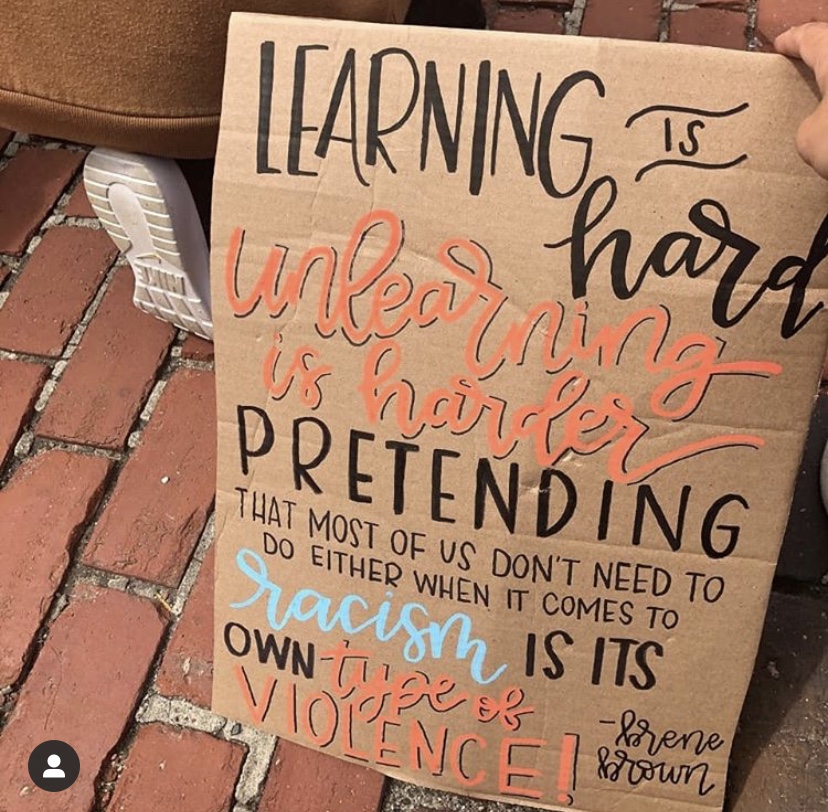 LEARNING IS
hard
unlearning
is harder
PRETENDING
THAT MOST OF US DON'T NEED TO
DO EITHER WHEN IT COMES TO
racism IS ITS
OWN type of
VIOLENCE!
-brene
brown
NIKE